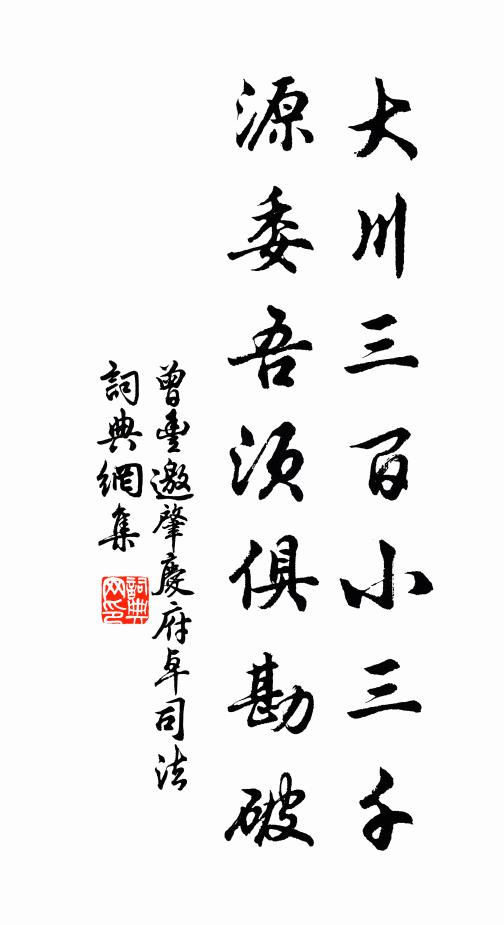 大川三百小三千
源委吾須俱勘破
曾豐邀肇慶府卓司法
詞典網集
詞典
网印